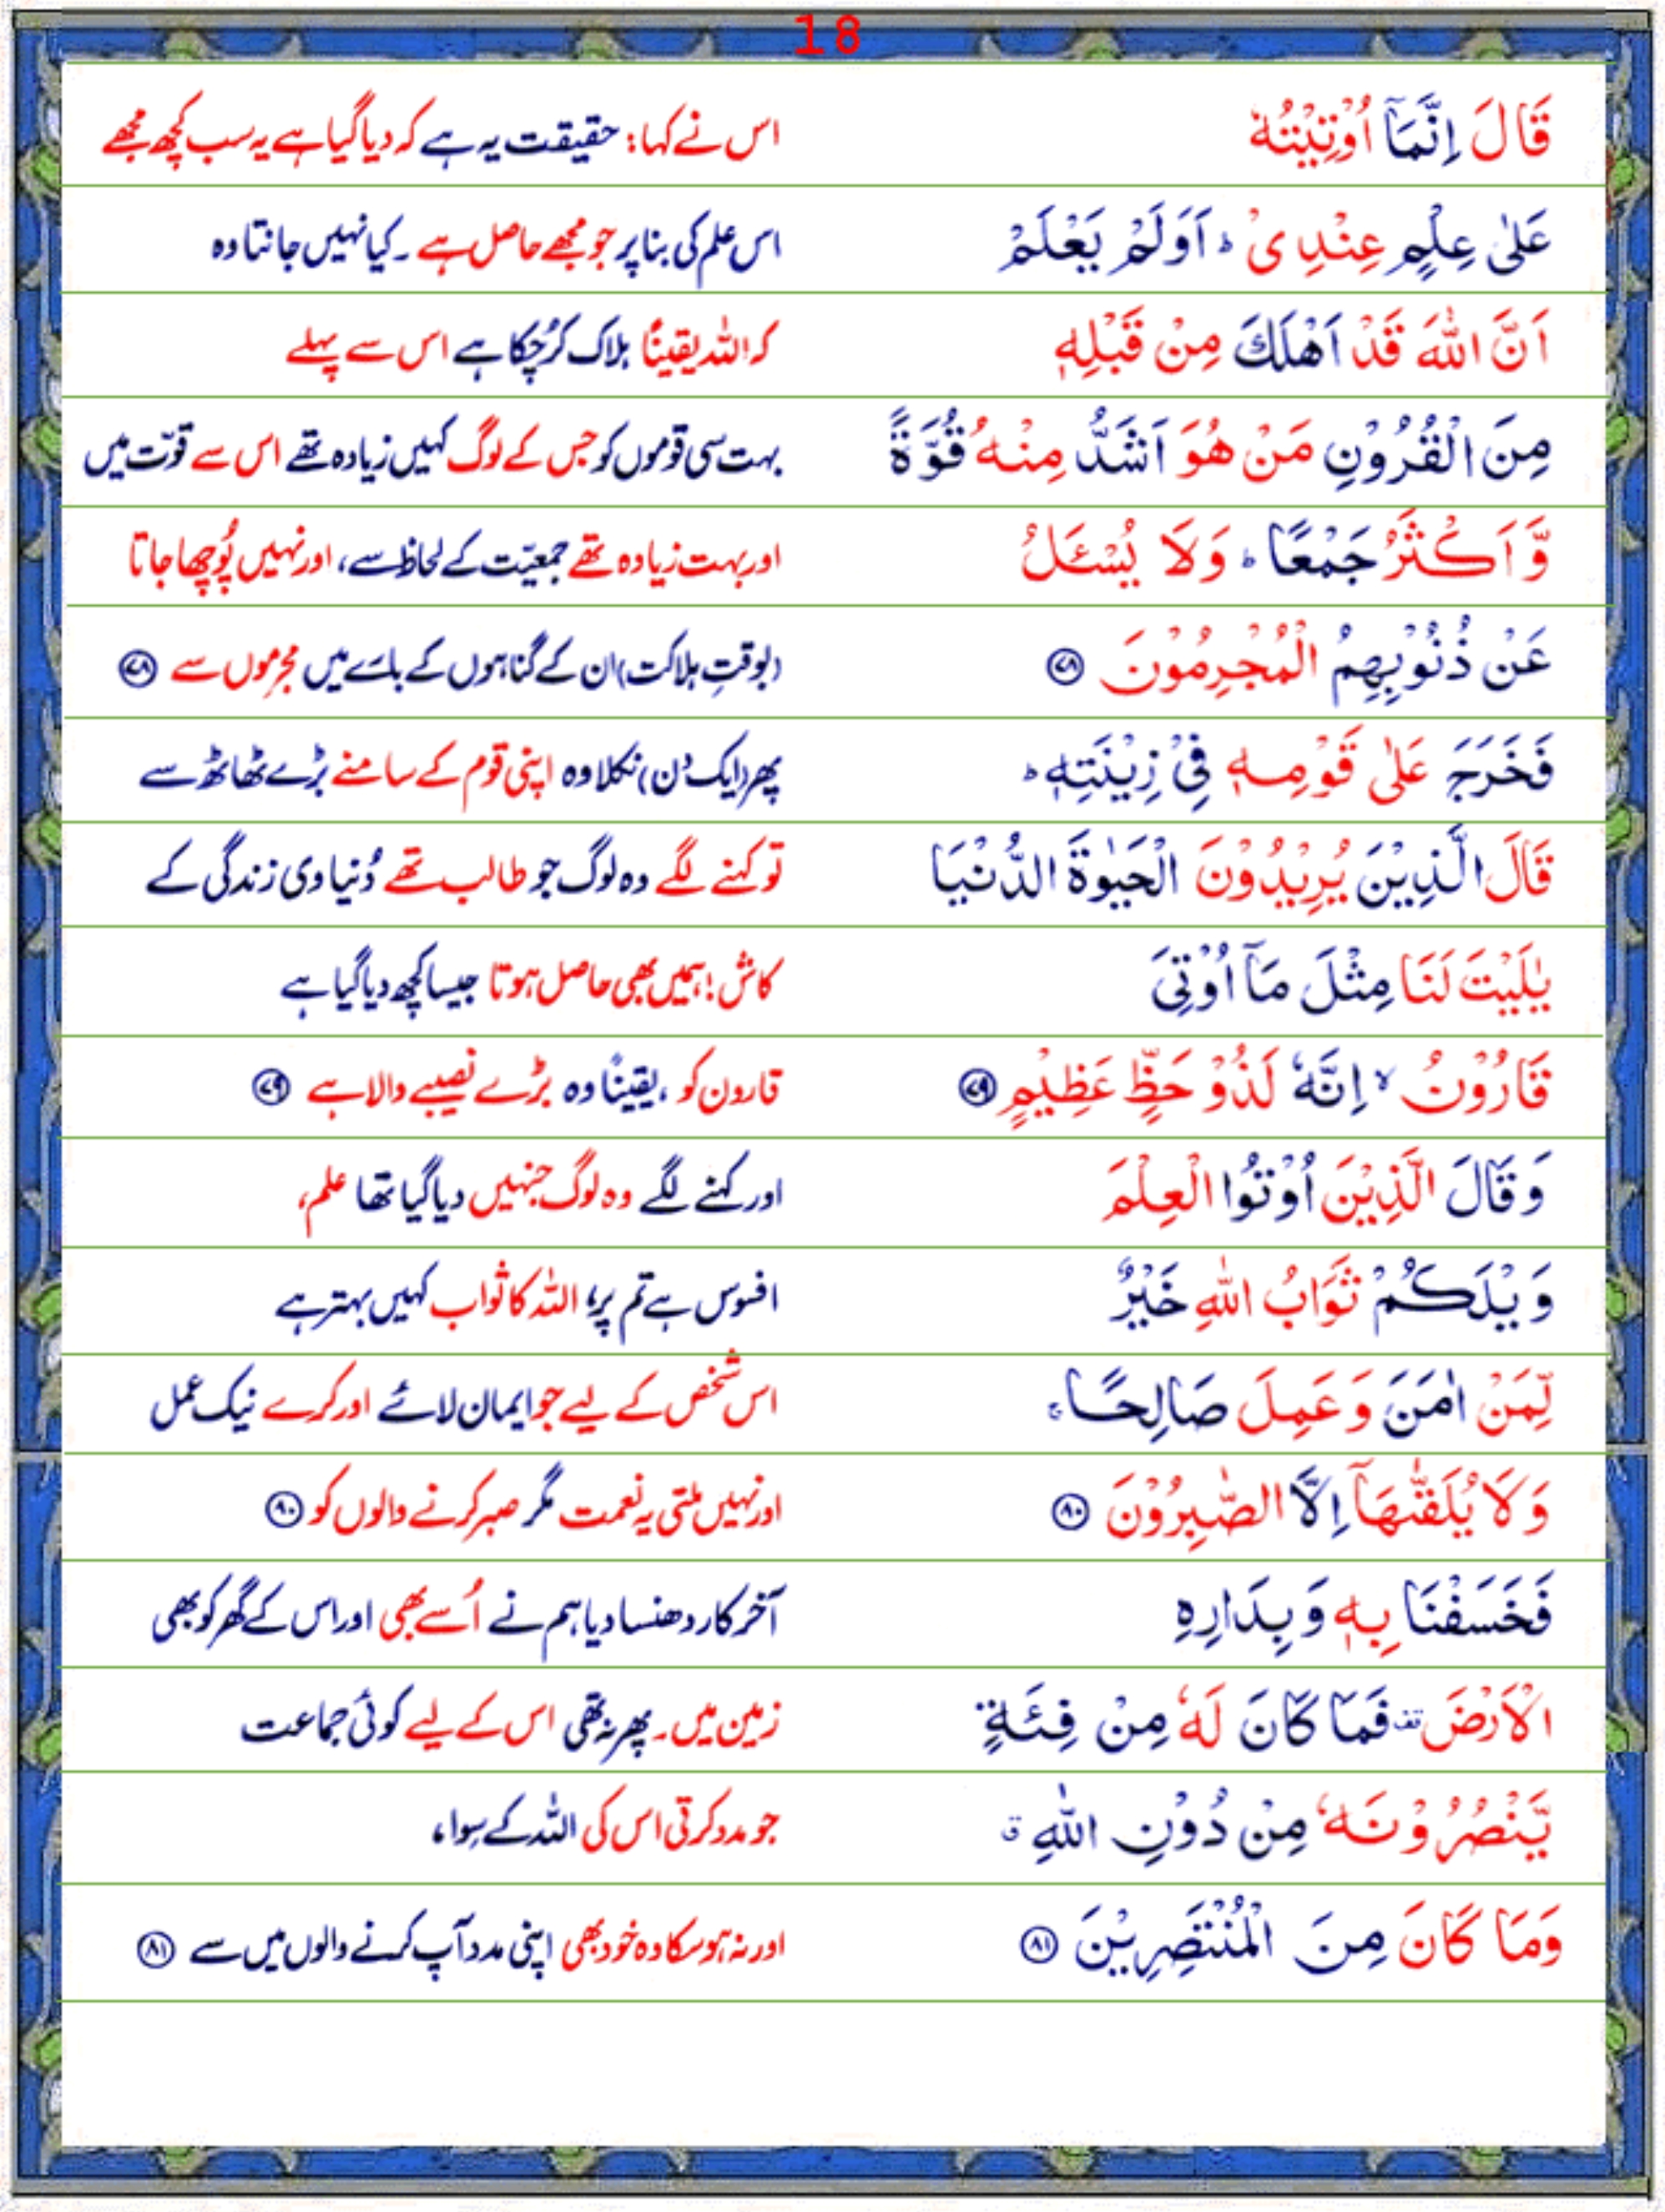 18
قَالَ اِنَّمَاۤ اُوْتِيْتُهٗ اس نے کہا: حقیقت یہ ہے کہ دیا گیا ہے یہ سب کچھ مجھے
عَلٰى عِلْمٍ عِنْدِىْ ؕ اَوَلَمْ يَعْلَمْ اس علم کی بنا پر جو مجھے حاصل ہے ۔ کیا نہیں جانتا وہ
اَنَّ اللّٰهَ قَدْ اَهْلَكَ مِنْ قَبْلِهٖ کہ اللہ یقیناً ہلاک کر چُکا ہے اس سے پہلے
مِنَ الْقُرُوْنِ مَنْ هُوَ اَشَدُّ مِنْهُ قُوَّةً بہت سی قوموں کو جس کے لوگ کہیں زیادہ تھے اس سے قوّت میں
وَّاَكْثَرُ جَمْعًا ؕ وَلَا يُسْـَٔلُ اور بہت زیادہ تھے جمعیّت کے لحاظ سے، اور نہیں پُوچھا جاتا
عَنْ ذُنُوْبِهِمُ الْمُجْرِمُوْنَ ﴿۷۸﴾ (بوقتِ ہلاکت) ان کے گناہوں کے بارے میں مجرموں سے ﴿۷۸﴾
فَخَرَجَ عَلٰى قَوْمِهٖ فِىْ زِيْنَتِهٖ ؕ پھر (ایک دن) نکلا وہ اپنی قوم کے سامنے بڑے ٹھاٹھ سے
قَالَ الَّذِيْنَ يُرِيْدُوْنَ الْحَيٰوةَ الدُّنْيَا تو کہنے لگے وہ لوگ جو طالب تھے دُنیاوی زندگی کے
يٰلَيْتَ لَنَا مِثْلَ مَاۤ اُوْتِىَ کاش! ہمیں بھی حاصل ہوتا جیسا کچھ دیا گیا ہے
قَارُوْنُ ۙ اِنَّهٗ لَذُوْ حَظٍّ عَظِيْمٍ ﴿۷۹﴾ قارون کو، یقیناً وہ بڑے نصیبے والا ہے ﴿۷۹﴾
وَقَالَ الَّذِيْنَ اُوْتُوا الْعِلْمَ اور کہنے لگے وہ لوگ جنہیں دیا گیا تھا علم،
وَيْلَكُمْ ثَوَابُ اللّٰهِ خَيْرٌ افسوس ہے تم پر، اللہ کا ثواب کہیں بہتر ہے
لِّمَنْ اٰمَنَ وَعَمِلَ صَالِحًا ۚ اس شخص کے لیے جو ایمان لائے اور کرے نیک عمل
وَلَا يُلَقّٰٮهَاۤ اِلَّا الصّٰبِرُوْنَ ﴿۸۰﴾ اور نہیں ملتی یہ نعمت مگر صبر کرنے والوں کو ﴿۸۰﴾
فَخَسَفْنَا بِهٖ وَبِدَارِهِ آخر کار دھنسا دیا ہم نے اُسے بھی اور اس کے گھر کو بھی
الْاَرْضَ ۟ فَمَا كَانَ لَهٗ مِنْ فِئَةٍ زمین میں۔ پھر نہ تھی اس کے لیے کوئی جماعت
يَّنْصُرُوْنَهٗ مِنْ دُوْنِ اللّٰهِ ۗ جو مدد کرتی اس کی اللہ کے سِوا،
وَمَا كَانَ مِنَ الْمُنْتَصِرِيْنَ ﴿۸۱﴾ اور نہ ہوسکا وہ خود بھی اپنی مدد آپ کرنے والوں میں سے ﴿۸۱﴾